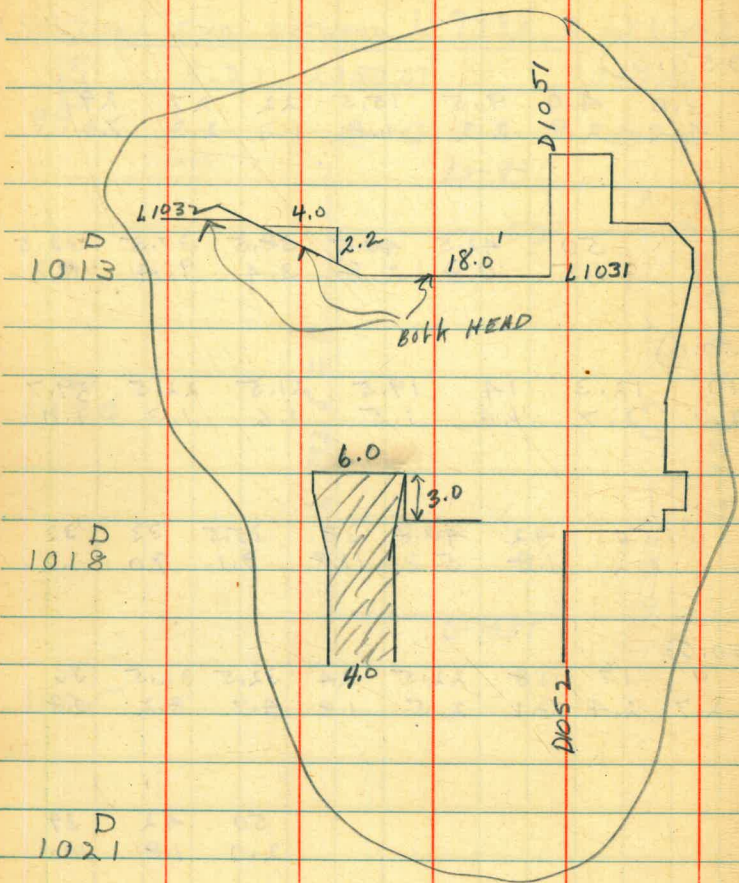 D1051
L1032
4.0
2.2
D
1013
18.0'
L1031
BOLK HEAD
6.0
3.0
D
1018
4.0
D1052
D
1021